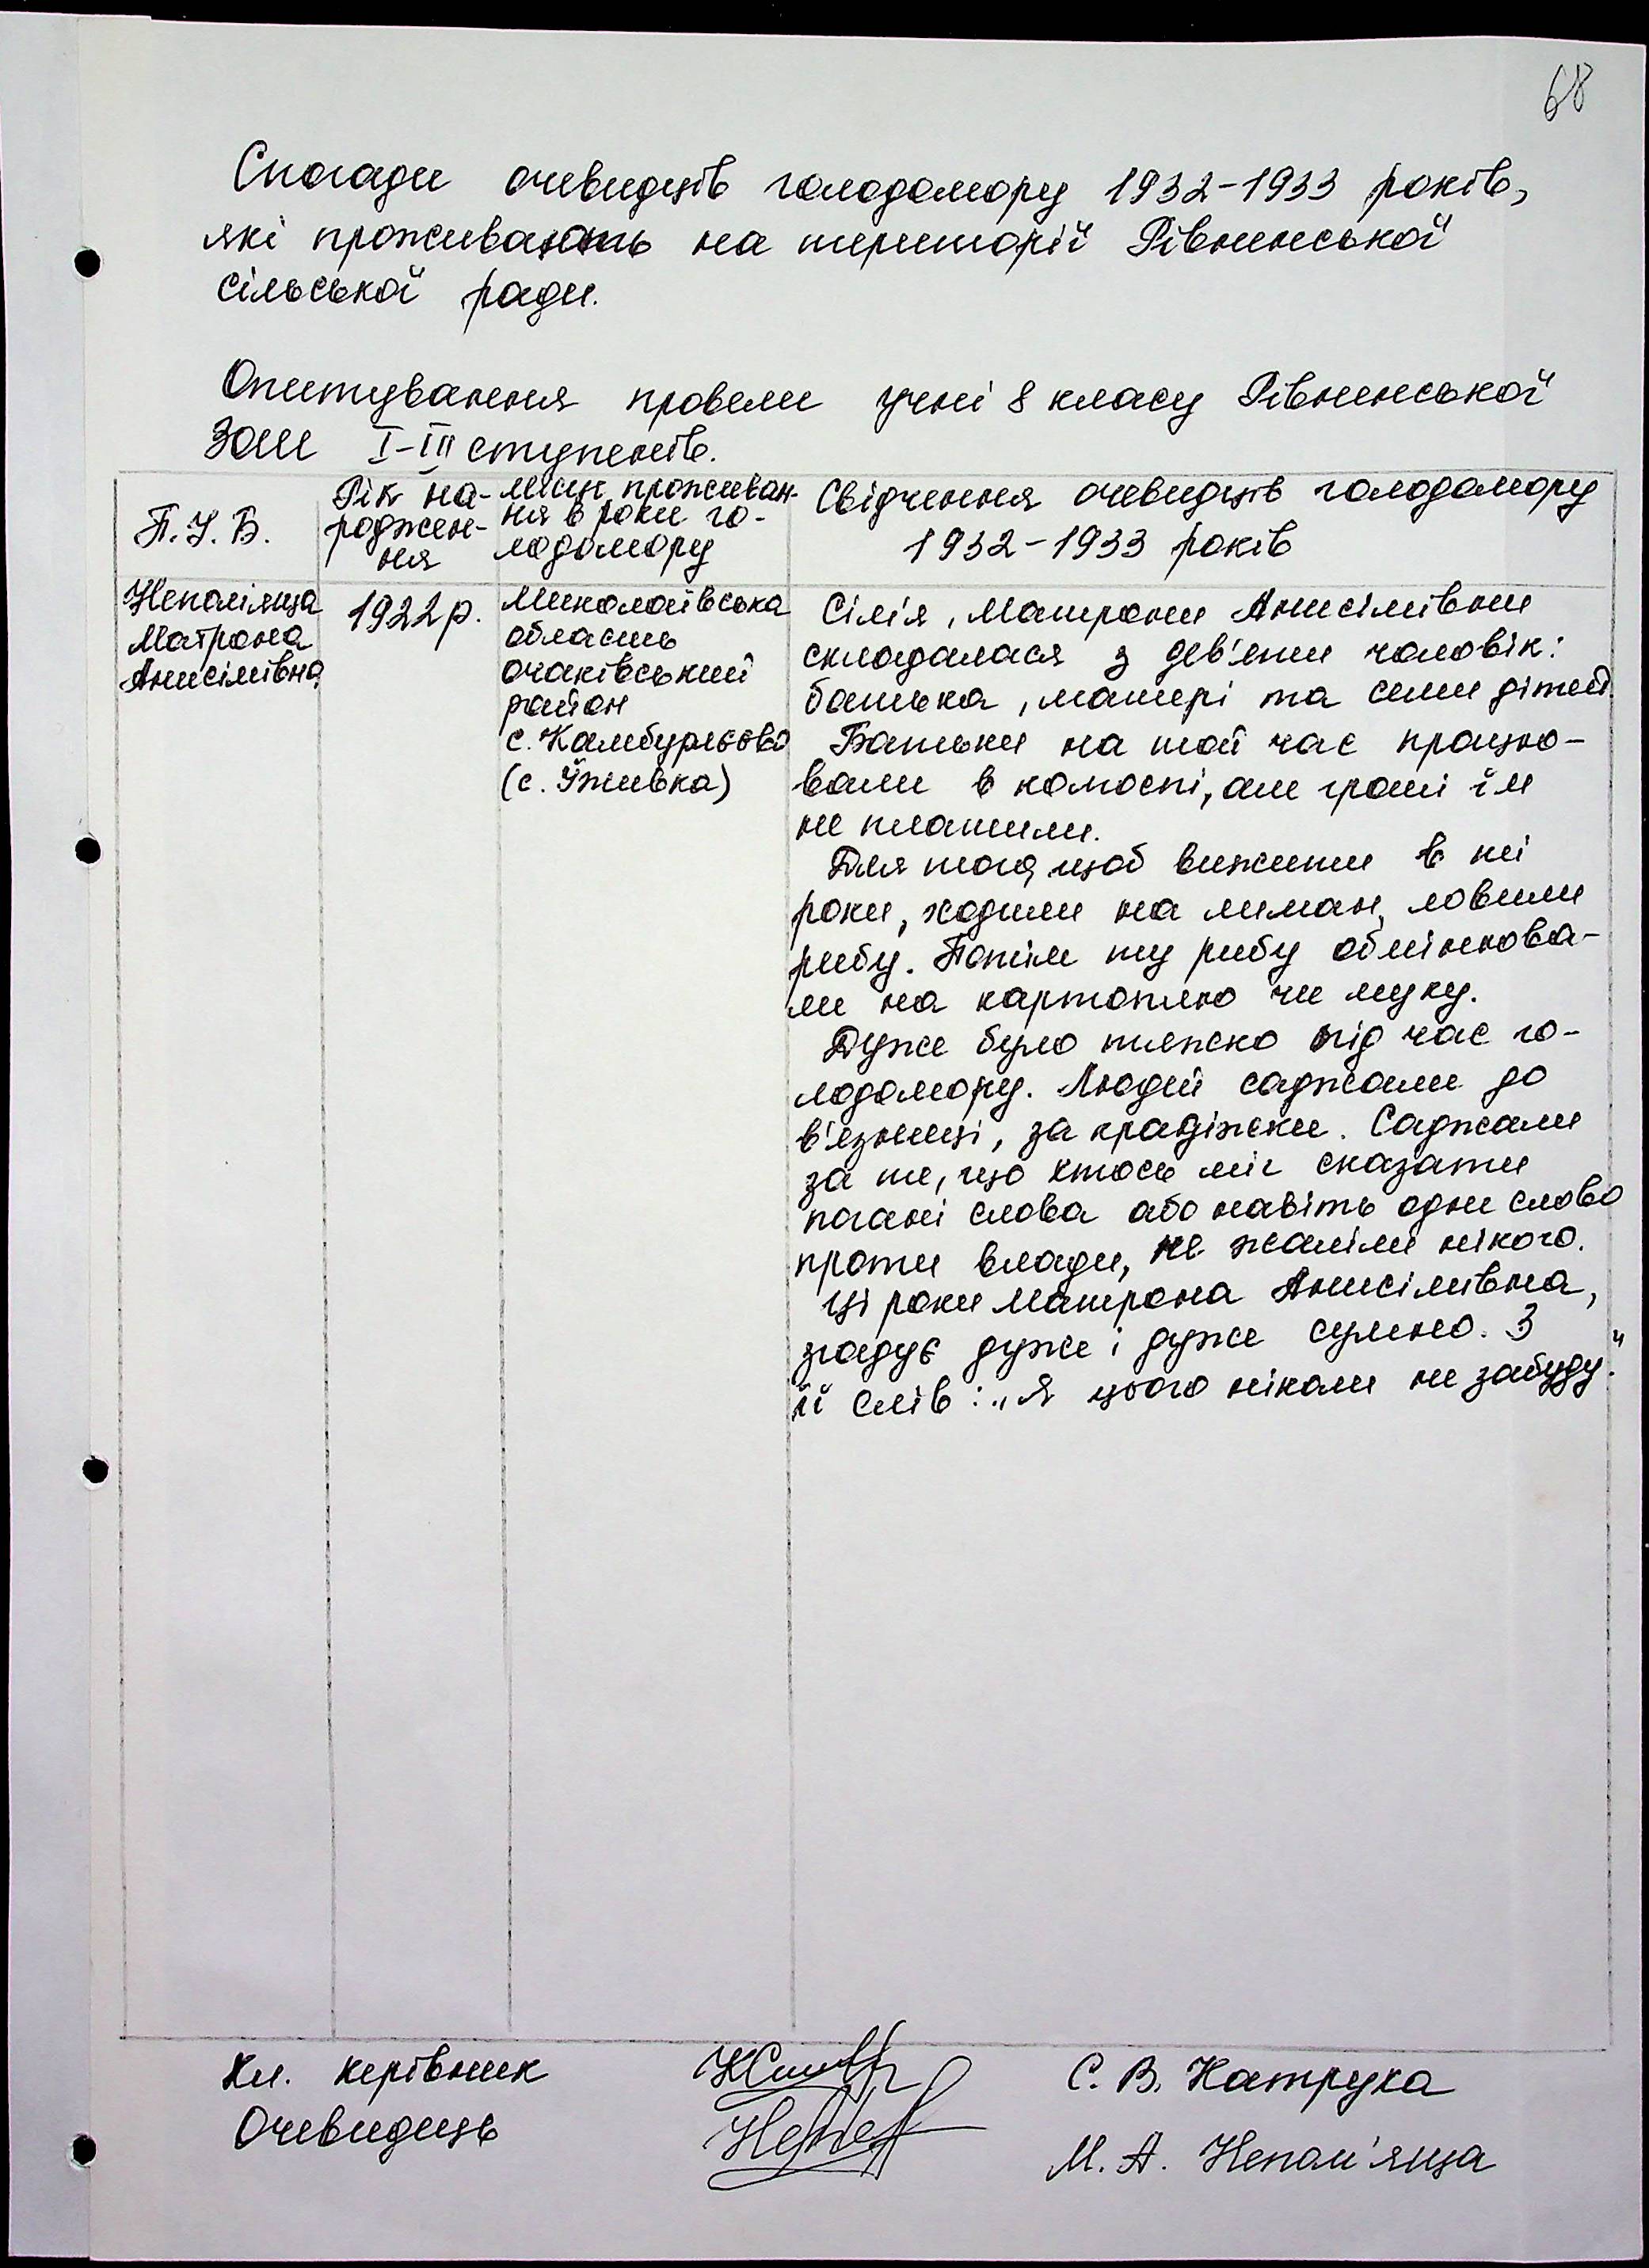 68
Спогади очевидців голодомору 1932-1933 років,
які проживають на території Рівненської
сільської ради.
Опитування провели учні 8 класу Рівненської
ЗОШ I-III ступенів.
П.І.Б.
Рік на-
роджен-
ня
Місце проживан-
ня в роки го-
лодомору
Свідчення очевидців голодомору
1932-1933 років
Непом'яща
Матрона
Анисімівна
1922р.
Миколаївська
область
очаківський
район
с. Камбурлєєво
(с. Ўживка)
Сім'я, Матрони Анисімівни
складалася з дев'яти чоловік:
батька, матері та семи дітей.
Батьки на той час працю-
вали в колоспі, але гроші їм
не платили.
Для того, щоб вижити в ті
роки, ходили на лиман, ловили
рибу. Потім ту рибу обмінюва-
ли на картоплю чи муку.
Дуже було тяжко під час го-
лодомору. Людей саджали до
в'язниці, за крадіжки. Саджали
за те, що хтось міг сказати
погані слова або навіть одне слово
проти влади, не жаліли нікого.
Ці роки Матрона Анисімівна,
згадує дуже і дуже сумно. З
її слів: „Я цього ніколи не забуду."
Кл. керівник
С. В. Катруха
Очевидець
М. А. Непом'яща